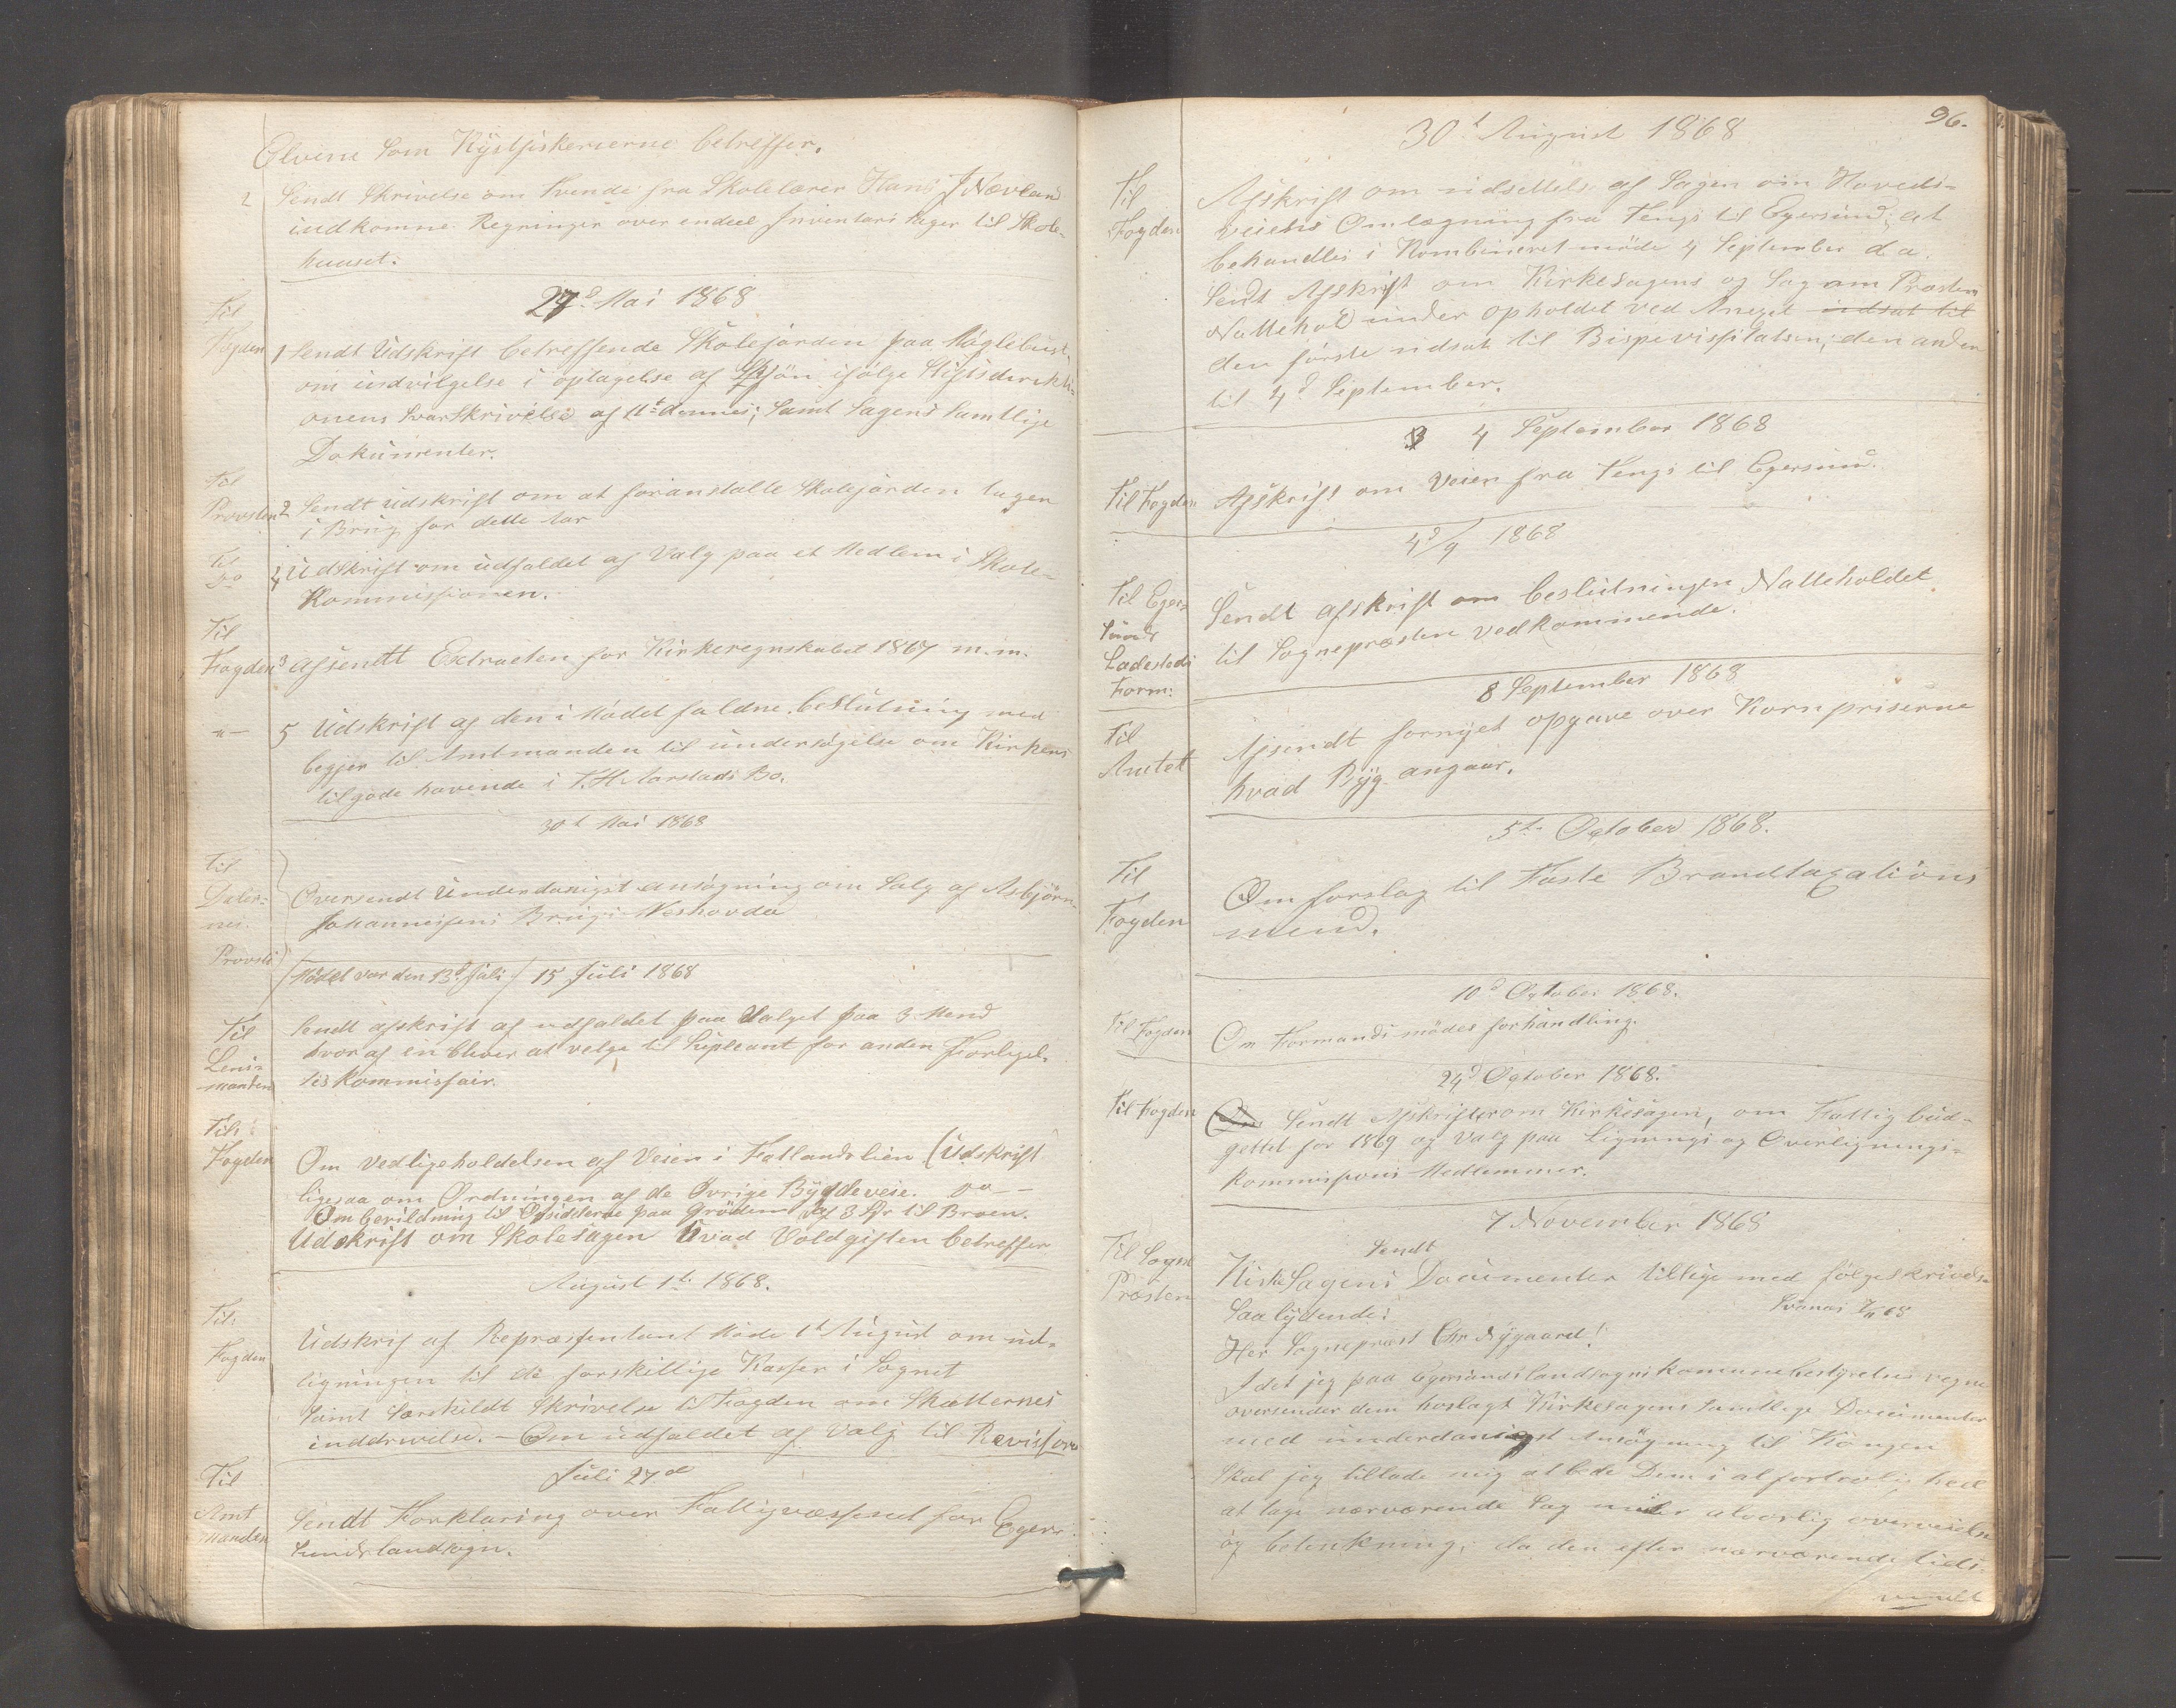 Elvene som Kystfiskerierne betreffer.
2 Sendt Skrivelse om tvende fra Skolelærer Hans J Nævland
indkomne Regninger over endeel Inventari sager til Skole-
huuset.
27d Mai 1868
Til
Fogden 1 Sendt Udskrift betreffende Skolejorden paa Høglebust,
om indvilgelse i optagelse af Skjön ifølge Stiftsdirekti-
onens Svarskrivelse af 11t dennes; Samt Sagens Samtlige
Dokumenter.
Til
Provsten 2 Sendt udskrift om at foranstalte Skolejorden tagen
i Brug for dette Aar
Til
do 4 Udskrift om udfaldet af Valg paa et Medlem i Skole-
Kommissionen.
Til
Fogden 3 afsendtt Extracten for Kirkeregnskabet 1867 m.m.
-"- 5 Udskrift af den i Mödet faldne beslutning med
begjer til Amtmanden til undersögelse om Kirkens
tilgode havende i T.H. Aarstads Bo.
30t Mai 1868
Til
Daler-
nes
Provsti
Oversendt Underdanigst ansögning om Salg af Asbjörn
Johannessens Brug i Neshovda
(Mödet var den 13d Juli) 15 Juli 1868
Til
Lens-
manden
Sendt afskrift af udfaldet paa Valget paa 3 Mend
hvoraf en bliver at velge til Supleant for anden Forligel-
ses Kommissair.
Til:
Fogden
Om Vedligeholdelsen af Veien i Hallandslien (Udskrift
ligesaa om Ordningen af de Övrige Bygdeveie. do -
Om Gerildning til Opsidderne paa Gröden af 3 Sp til Broen.
Udskrift om Skolesagen hvad Voldgiften betreffer
August 1t. 1868.
Til:
Fogden
Udskrif af Repræssentant Möde 1t August om ud-
ligningen til de forskillige Kasser i Sognet
samt Særskildt Skrivelse til Fogden om Skatternes
inddrivelse. - Om udfaldet af Valg til Revissore
Juli 27d
Til
Amt
manden
Sendt Forklaring over Fattigvæssenet for Eger-
sunds landsogn.
96.
30t August 1868
Til
Fogden
Afskrift om udsettelse af Sagen om Hoveds-
veiens Omlægning fra Tengs til Egersund, at
behandles i Kombineret möde 4 September d. a.
Sendt Afskrift om Kirkesagens og Sag om Præstens
Nattehold under opholdet ved Anneget udsat til
den förste udsat til Bispevissitatsen; den anden
til 4d September.
4 September 1868
Til Fogden Afskrift om Veien fra Tengs til Egersund.
4d/9 1868
Til Eger-
sunds
Ladesteds
Form:
Sendt afskrift om beslutningen Natteholdet
til Sognepræsten vedkommende.
8 September 1868
Til
Amtet
Afsendt fornyet opgave over Kornpriserne
hvad Byg angaar.
5te October 1868.
Til
Fogden
Om forslag til Faste Brandtaxations
mend.
10d October 1868.
Til Fogden Om Formands mödes forhandling.
24d October 1868.
Til Fogden Om Sendt Afskrifter om Kirkesagen, om Fattig bud-
gettet for 1869 og Valg paa Lignings og Overlignings-
kommissions Medlemmer.
7 November 1868
Til Sogne
Præsten
Sendt
Kirke Sagens Documenter tillige med fölgeskrivelse
Saalydende:
Svanæs 7/11 68
Her Sognepræst Chr Nygaard!
Idet jeg paa Egersunds landsogns kommunebestyrelses vegne
oversender dem hoslagt Kirkesagens Samtlige Documenter
med underdanigst Ansögning til Kongen
Skal jeg tillade mig at bede Dem i al fortrolighed
at tage nærværende Sag under alvorlig overveielse
og betenkning, da den efter nærværende tids-